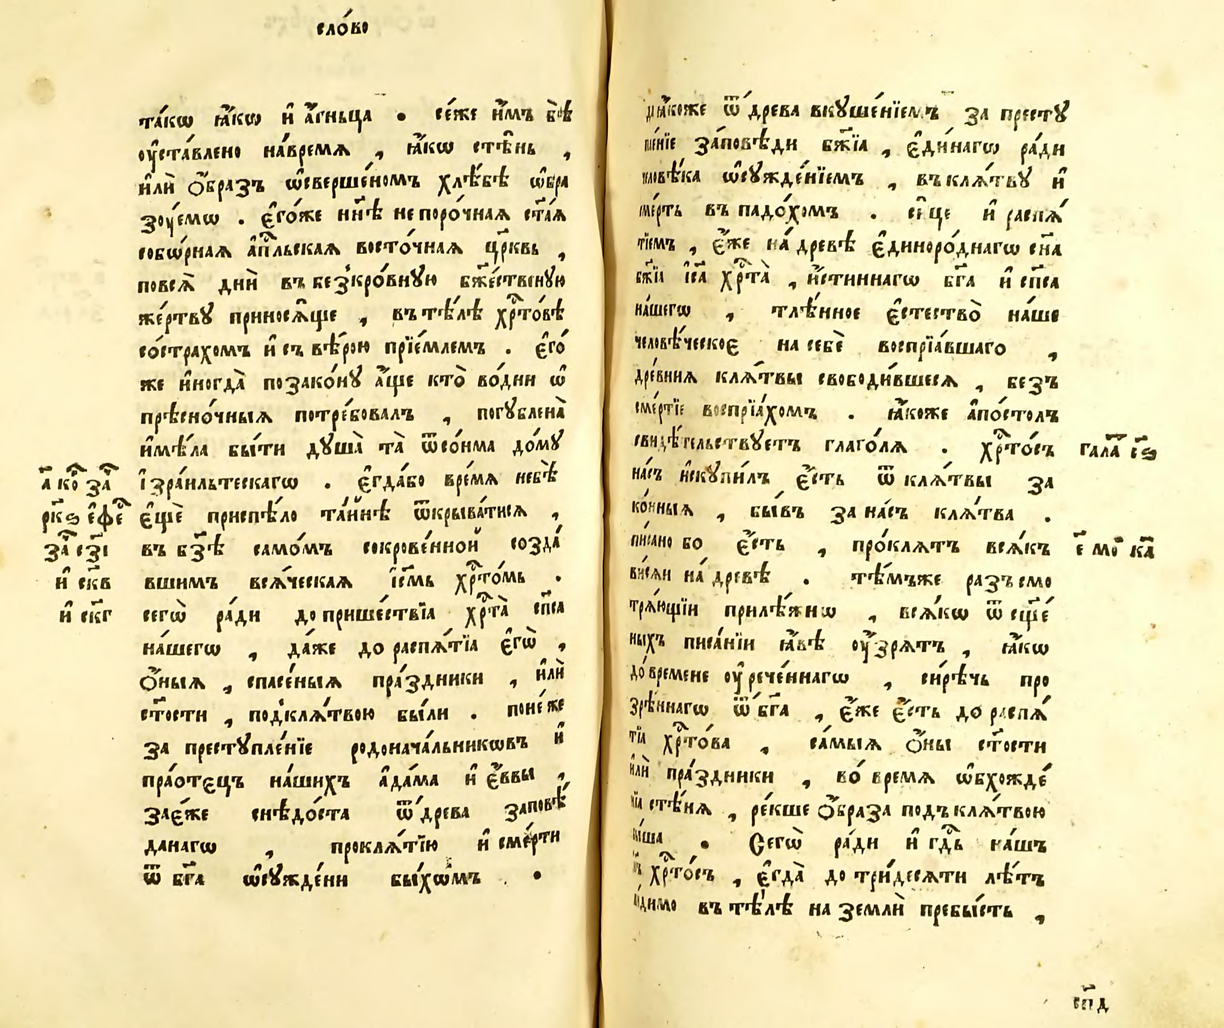 сло́во
та́кѡ ꙗ҆́кѡ и҆ а҆́гньца . се́же и҆̀мъ бѣ̀
оу҆ста́влено на́времѧ , ꙗ҆́кѡ стѣ́нь ,
и҆лѝ ѻ҆́бразъ ѡ҆̀совершє́номъ хлѣ́бѣ ѡ҆бра
зꙋ́емѡ . є҆го́же нн҃ѣ непоро́чнаѧ ст҃а́ѧ
собѡ́рнаѧ а҆пⷭ҇льскаѧ восто́чнаѧ цр҃квь ,
повсѧ̀ днѝ въбезкро́внꙋю бж҃е́ственꙋю
же́ртвꙋ приносѧ́ще , вътѣ́лѣ хрⷭ҇то́вѣ
со́страхомъ и҆съ вѣ́рою прїе́млемъ . є҆го́
же и҆ногда̀ позако́нꙋ а҆́ще кто̀ во́дни ѡ҆
прѣсно́чныѧ потре́бовалъ , погꙋблена̀
и҆мѣ́ла бы́ти дꙋша̀ та̀ ѿсо́нма до́мꙋ
і҆зра́ильтескагѡ . є҆гда́бо вре́мѧ небѣ̀
є҆щѐ приспѣ́ло та́йнѣ ѿкрыва́тисѧ ,
въ бз҃ѣ само́мъ сокрове́нной созда́
вшимъ всѧ́ческаѧ і҆с҃мь хрⷭ҇то́мь .
сегѡ̀ ра́ди допришє́ствїа хрⷭ҇та̀ сп҃са
на́шегѡ , да́же до распѧ́тїа є҆гѡ̀ ,
ѻ҆́ныѧ , спасе́ныѧ пра́здники , и҆лѝ
ст҃ости , под̾клѧ́твою бы́ли . поне́же
за престꙋпле́нїе родонача́льникѡвъ и҆
пра́отєцъ на́шихъ а҆да́ма и҆ є҆́ѵвы ,
зае́же снѣ́доста ѿ дре́ва заповѣ́
данагѡ , проклѧ́тїю и҆ сме́рти
ѿ бг҃а ѡ҆сꙋждє́ни бы́хѡмъ .
а҃ ко́ за
рк҃ѕ є҆фе́
за с҃зі
и҆ ск҃в
и҆ ск҃г
ꙗ҆́коже ѿ дре́ва вкꙋше́нїемъ за престꙋ
пле́нїе за́повѣди бж҃їа , є҆ди́нагѡ ра́ди
человѣ́ка ѡ҆сꙋжде́нїемъ , въклѧ́твꙋ и҆
сме́рть въпадо́хомъ . си́це и҆ распѧ́
тїемъ , є҆́же на́древѣ є҆диноро́днагѡ сн҃а
бж҃їа і҆с҃а хрⷭ҇та̀ , и҆́стиннагѡ бг҃а и҆ сп҃са
на́шегѡ , тлѣ́нное є҆стество̀ на́ше
человѣ́ческоє на себѐ воспрїа́вшаго ,
дре́внїѧ клѧ́твы свободи́вшесѧ , безъ
сме́ртїе воспрїа́хомъ . ꙗ҆́коже а҆по́столъ
свидѣ́тельствꙋетъ глаго́лѧ . хрⷭ҇то́съ
на́съ и҆скꙋпи́лъ є҆́сть ѿ клѧ́твы за
ко́нныѧ , бы́въ за на́съ клѧ́тва .
пи́сано бо є҆́сть , про́клѧтъ всѧ́къ
висѧ́и на́древѣ . тѣ́мъже разъсмо
трѧ́ющїи прилѣ́жнѡ , всѧ́кѡ ѿ сще́
ныхъ писа́нїи ꙗ҆́вѣ оу҆́зрѧтъ , ꙗ҆́кѡ
до́времене оу҆рече́ннагѡ , си́рѣчь про
зрѣ́ннагѡ ѿ бг҃а , є҆́же є҆́сть до распѧ́
тїа хрⷭ҇то́ва , са́мыѧ ѻ҆́ны ст҃ости
и҆лѝ пра́здники , во́ времѧ ѡ҆бхожде́
нїа стѣ́нѧ , ре́кше ѻ҆́браза подъклѧ́твою
бы́ша . Сегѡ̀ ра́ди и҆ гдⷭ҇ь на́шъ
хрⷭ҇то́съ , є҆гда̀ до три́десѧти лѣ́тъ
ви́димо въ тѣ́лѣ на землѝ пребы́сть ,
гала́ с҃ѕ
є҃ мо́ ка
сп҃д